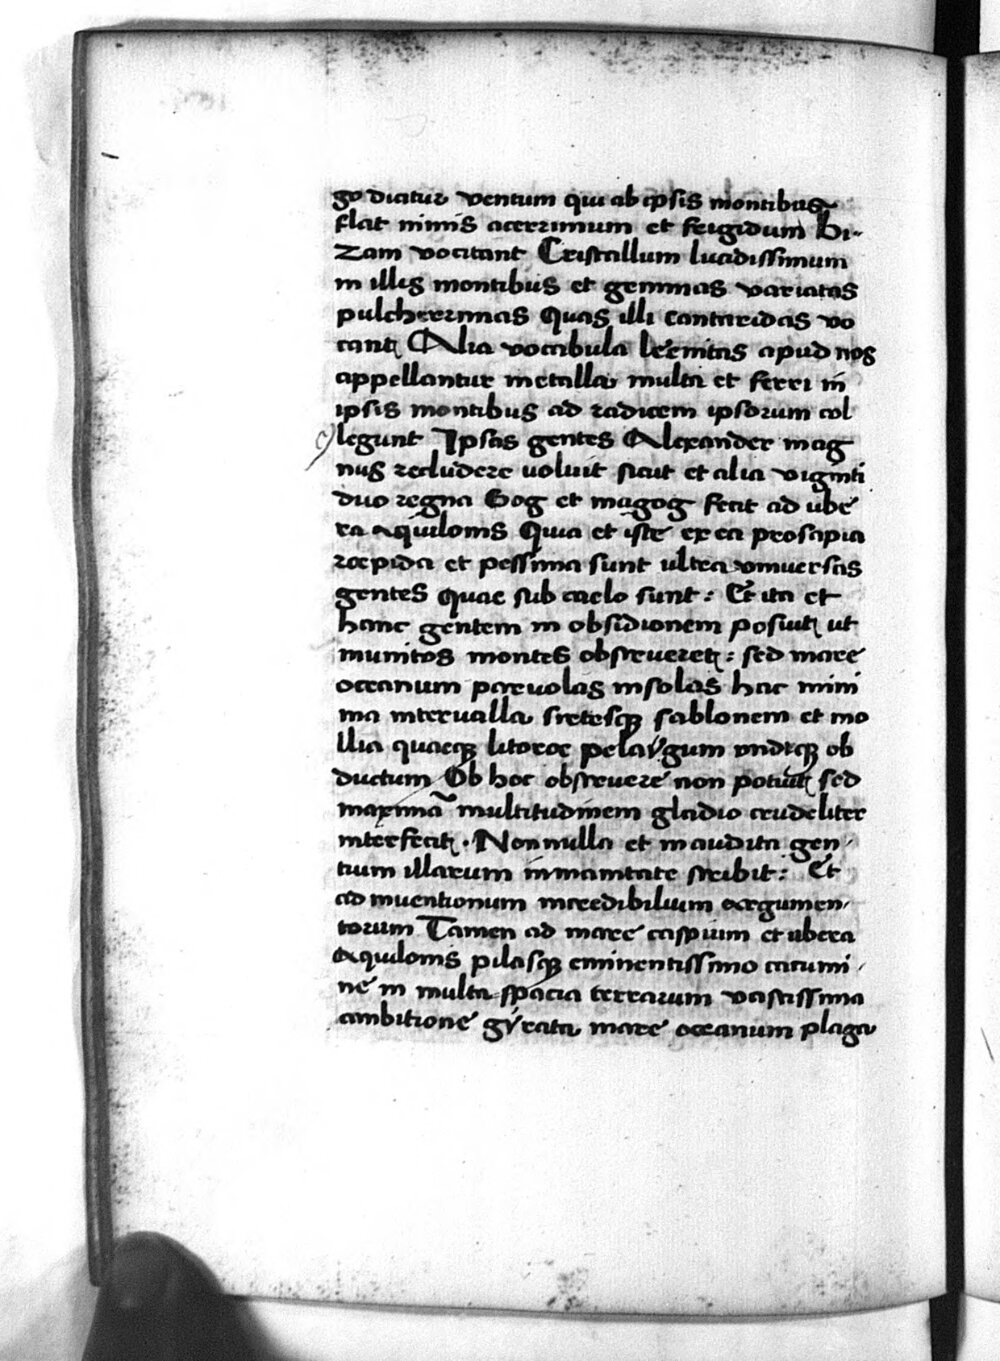 go dicitur ventum qui ab ipsis montibus
flat nimis acerrimum et frigidum Bi-
zam vocitant Cristallum lucidissimum
in illis montibus et gemmas variatas
pulcherrimas Quas illi cantaridas vo
cant Alia vocabula leenitas apud nos
appellantur metalla multa et ferri in
ipsis montibus ad radicem ipsorum col
legunt Ipsas gentes Alexander mag
nus recludere voluit sicut et alia viginti
duo regna Gog et magog fecit ad ube
ra aquilonis Quia et iste ex ea prosapia
rœpida et pessima sunt ultra vniuersas
gentes quae sub caelo sunt : Et ita et
hanc gentem in obsidionem posuit ut
munitos montes obstrueret : sed mare
oceanum paruolas insolas hac mini
ma interualla sretesq; sablonem et mo
llia quaeq; litoroe pelaygum vndiq; ob
ductum Ob hoc obstruere non potuit sed
maximã multitudinem gladio crudeliter
interfecit . Nonnulla et inaudita gen-
tium illarum inmanitate scribit : Et
ad inuentionum incredibilium argumen-
torum Tamen ad mare caspium et ubera
aquilonis pilasq; eminentissimo cacumi-
ne in multa spacia terrarum vastissima
ambitione gyrata mare oceanum plaga